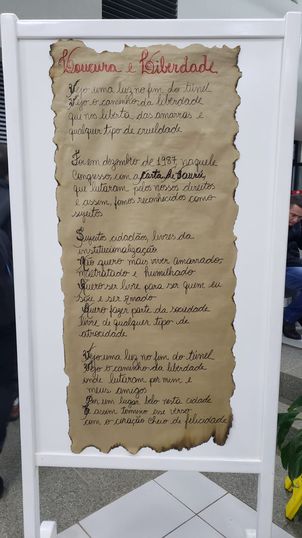 Loucura e Liberdade
Vejo uma luz no fim do túnel
Vejo o caminho da liberdade
que nos liberta das amarras e
qualquer tipo de crueldade
Foi em dezembro de 1987, naquele
Congresso, com a Carta de Bauru,
que lutaram pelos nossos direitos
e assim, fomos reconhecidos como
sujeitos
Sujeitos cidadãos, livres da
institucionalização
Não quero mais viver amarrado,
maltratado e humilhado
Quero ser livre para ser quem eu
sou e ser amado
Quero fazer parte da sociedade
livre de qualquer tipo de
atrocidade
Vejo uma luz no fim do túnel
Vejo o caminho da liberdade
onde lutaram por mim e
meus amigos
Por um lugar belo nesta cidade
E assim termino esse verso
com o coração cheio de felicidade